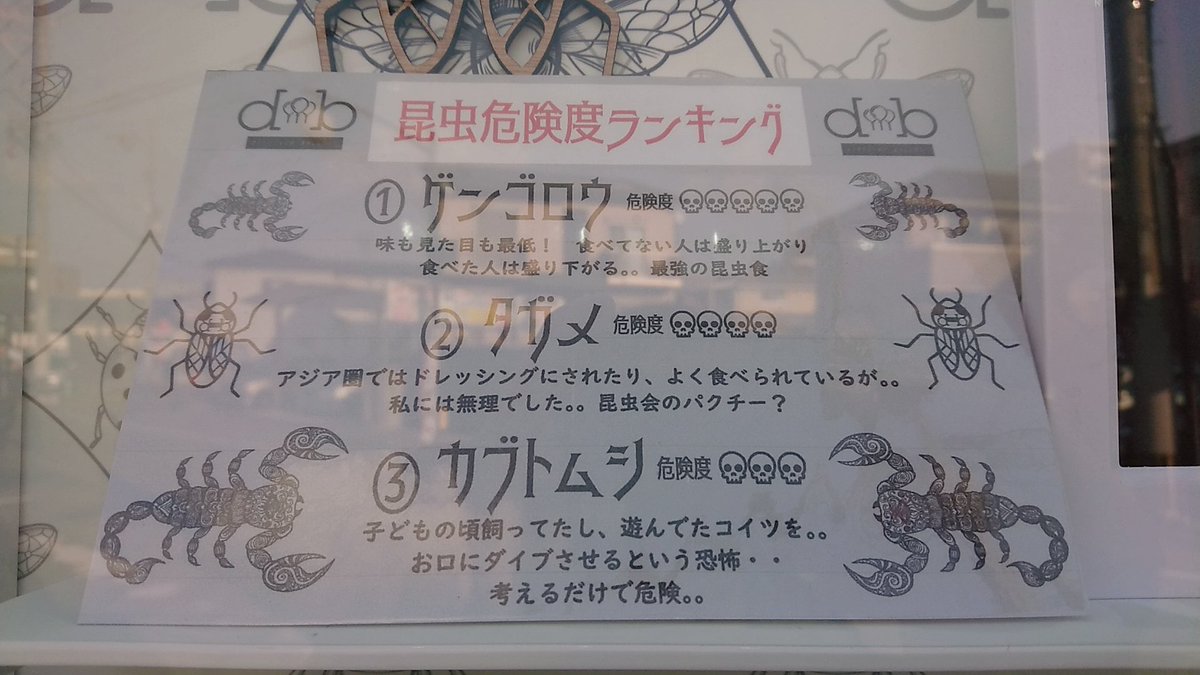 d b
昆虫危険度ランキング
d b
① ゲンゴロウ 危険度
味も見た目も最低！ 食べてない人は盛り上がり
食べた人は盛り下がる。。最強の昆虫食
② タガメ 危険度
アジア圏ではドレッシングにされたり、よく食べられているが。。
私には無理でした。。昆虫会のパクチー？
③ カブトムシ 危険度
子どもの頃飼ってたし、遊んでたコイツを。。
お口にダイブさせるという恐怖・・
考えるだけで危険。。